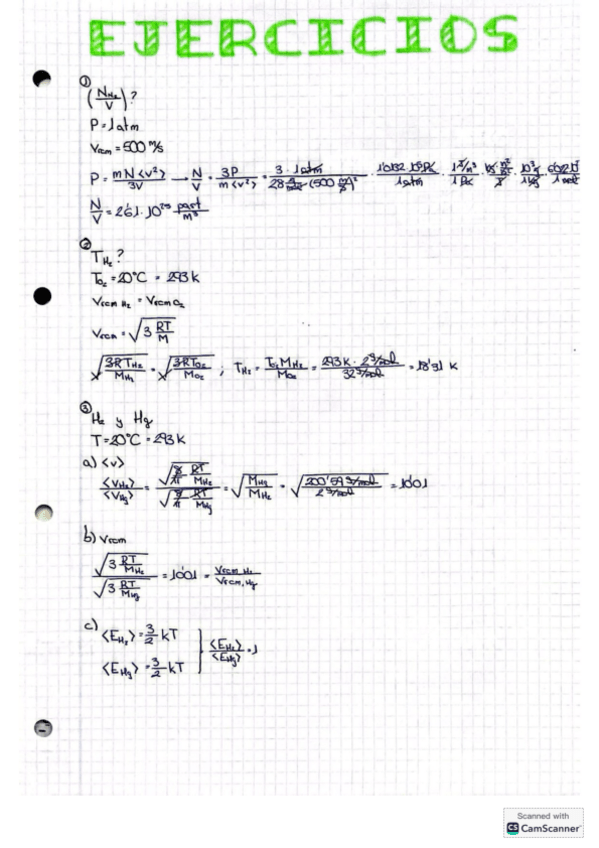 EJERCICIOS
①
(N_H₂/V)?
P = 1 atm
v_rcm = 500 m/s
P = mN<v²>/3V → N/V = 3P/m<v²> = 3 · 1 atm / 28 g/mol (500 m/s)²
N/V = 2'61 · 10²⁵ part/m³
②
T_H₂?
T_O₂ = 20°C = 293 k
v_rcm H₂ = v_rcm O₂
v_rcm = √(3 RT/M)
√(3RT_H₂/M_H₂) = √(3RT_O₂/M_O₂) ; T_H₂ = T_O₂ M_H₂/M_O₂ = 293 k · 2 g/mol / 32 g/mol = 18'31 k
③
H₂ y Hg
T = 20°C = 293 k
a) <v>
<v_H₂>/<v_Hg> = √(8/π RT/M_H₂) / √(8/π RT/M_Hg) = √(M_Hg/M_H₂) = √(200'59 g/mol / 2 g/mol) = 10'01
b) v_rcm
√(3 RT/M_H₂) / √(3 RT/M_Hg) = 10'01 = v_rcm, H₂ / v_rcm, Hg
c) <E_H₂> = 3/2 kT
<E_Hg> = 3/2 kT } <E_H₂>/<E_Hg> = 1
Scanned with
CS CamScanner